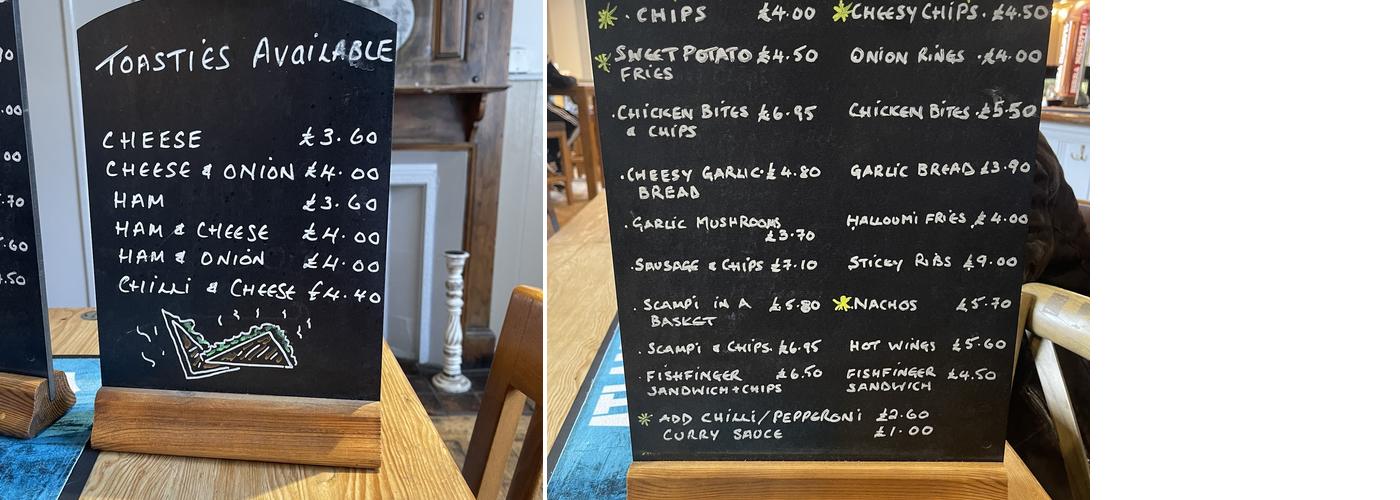 .00
00
.70
.60
.50
TOASTIES AVAILABLE
CHEESE £3.60
CHEESE & ONION £4.00
HAM £3.60
HAM & CHEESE £4.00
HAM & ONION £4.00
CHILLI & CHEESE £4.40
* · CHIPS £4.00
* SWEET POTATO £4.50
FRIES
· CHICKEN BITES £6.95
& CHIPS
· CHEESY GARLIC · £4.80
BREAD
· GARLIC MUSHROOMS
£3.70
· SAUSAGE & CHIPS £7.10
· SCAMPI IN A £5.80
BASKET
· SCAMPI & CHIPS · £6.95
· FISHFINGER £6.50
SANDWICH+CHIPS
* CHEESY CHIPS · £4.50
ONION RINGS · £4.00
CHICKEN BITES · £5.50
GARLIC BREAD £3.90
HALLOUMI FRIES £4.00
STICKY RIBS £9.00
* NACHOS £5.70
HOT WINGS £5.60
FISHFINGER £4.50
SANDWICH
* ADD CHILLI/PEPPERONI £2.60
CURRY SAUCE £1.00